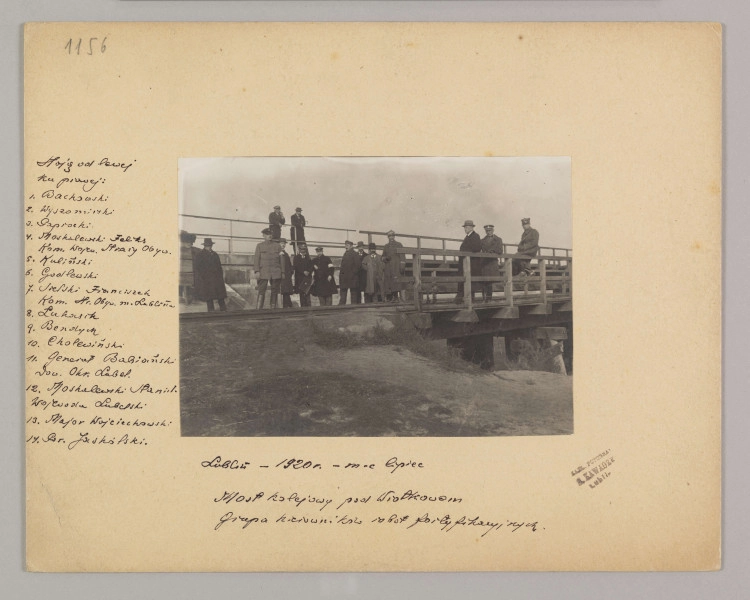 1156
Stoją od lewej
ku prawej:
1. Bachowski
2. Wyszomirski
3. Sapiecki
4. Moskalewski Feliks
Kom. Wojew. Straży Obyw.
5. Kuliński
6. Godlewski
7. Franciszek
Kom. St. Obyw. m. Lublina
8. Lukasik
9. Bendych
10. Cholewiński
11. Generał Babiański
Dow. Okr. Lubel.
12. Moskalewski Stanisł.
Wojewoda Lubelski
13. Major Wojciechowski
14. Br. Jasiński.
Lublin – 1920 r. – m-c lipiec
Most kolejowy pod
Grupa kierowników robót fortyfikacyjnych.
R. ZAWADZKI